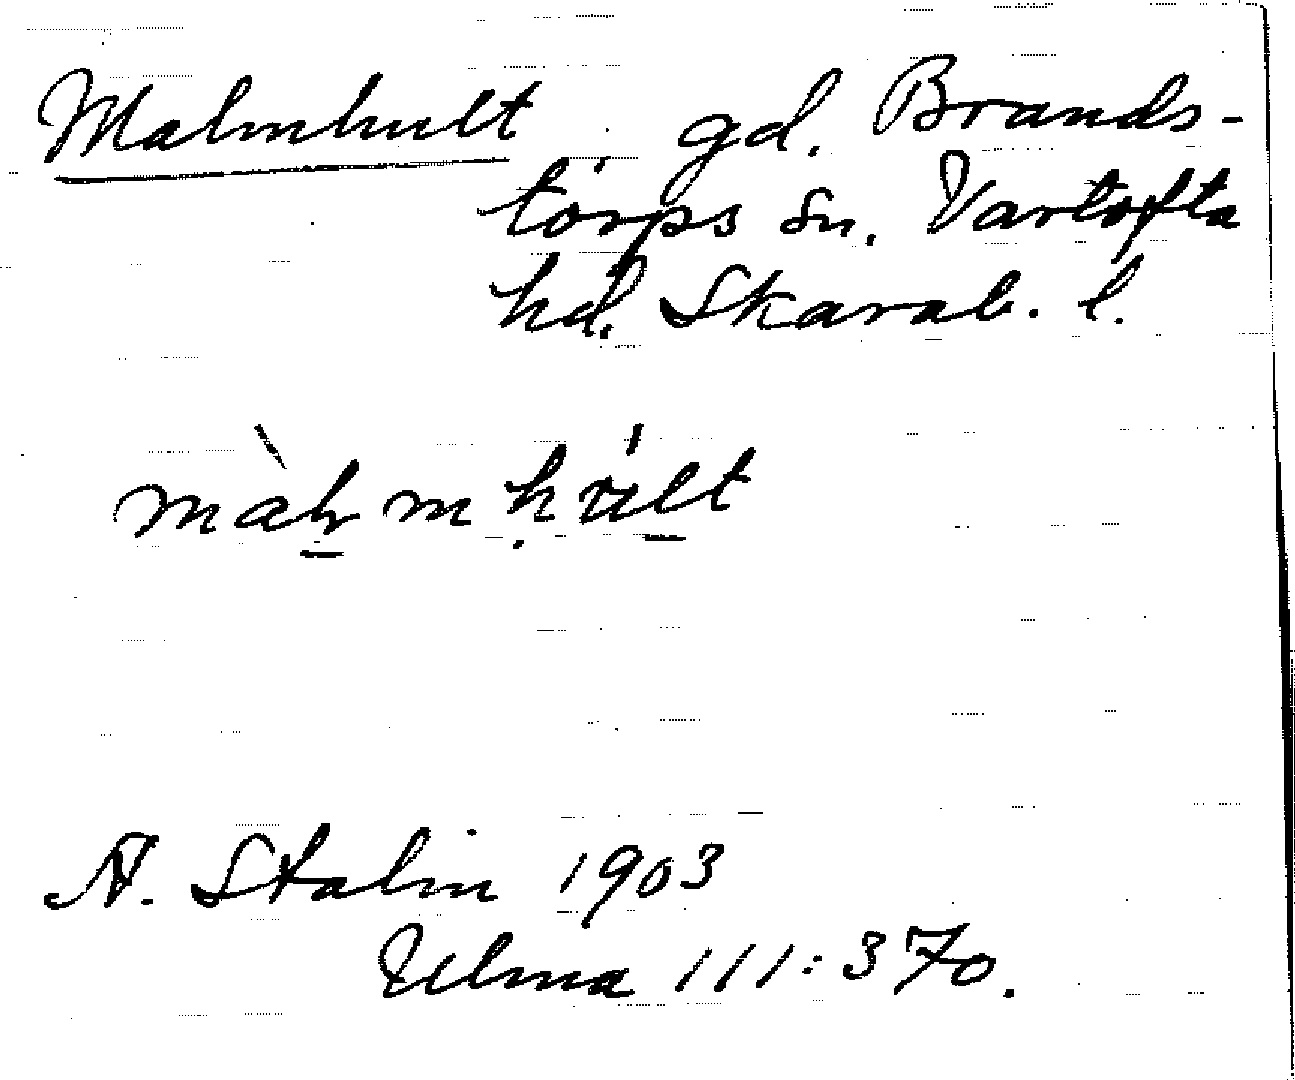 Malmhult gd. Brands-
torps sn. Vartofta
hd. Skarab. l.
A. Stalin 1903
Ulma 111:370.